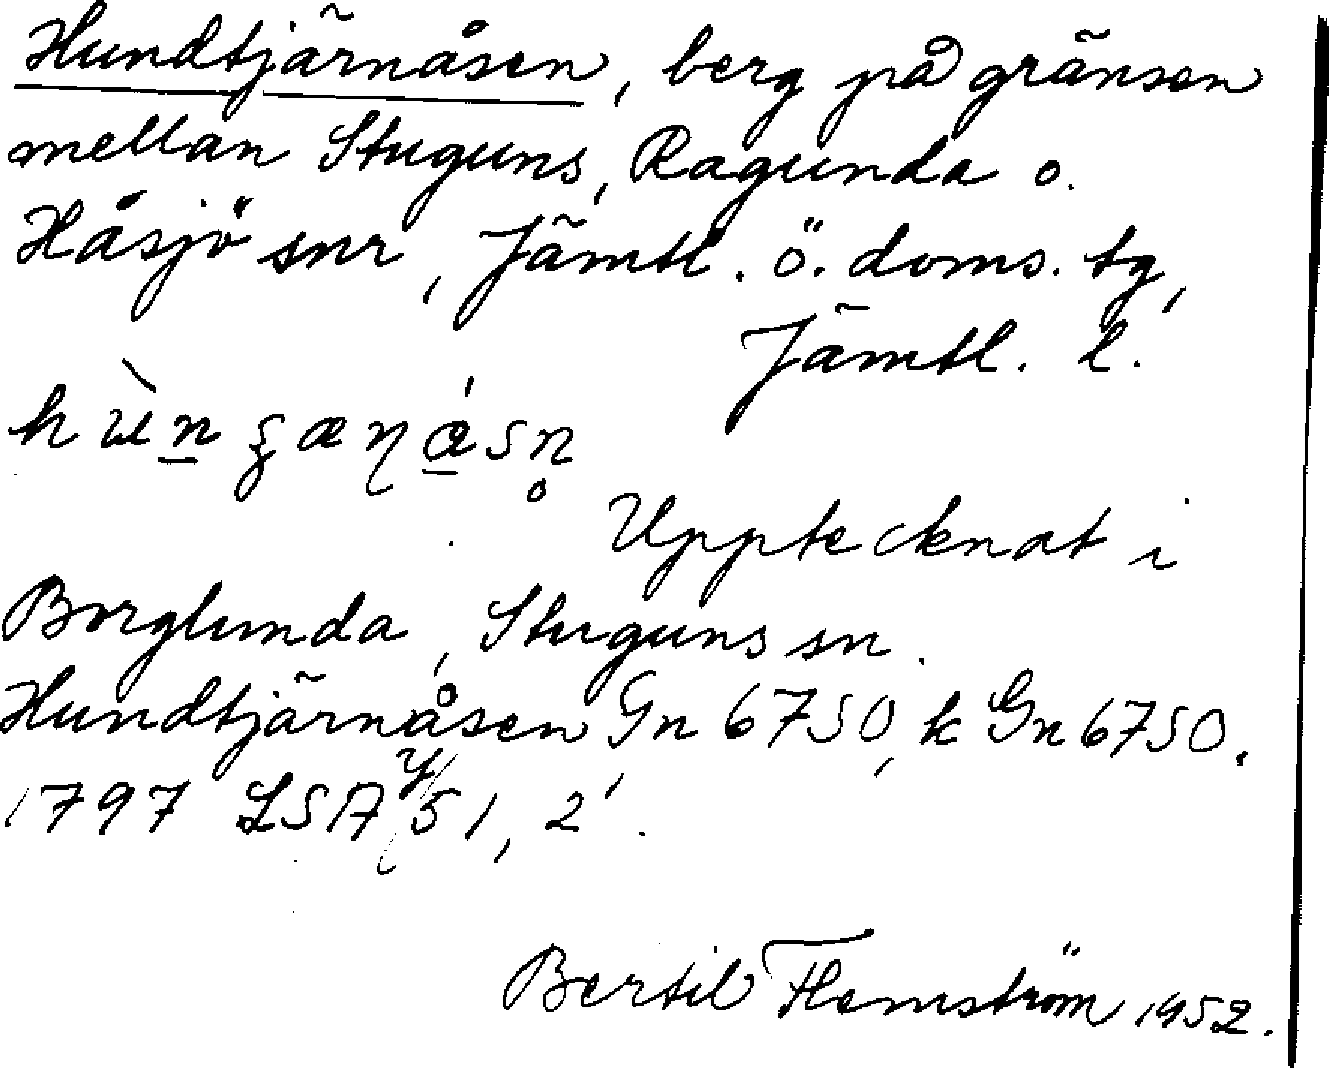 Hundtjärnåsen, berg på gränsen
mellan Stuguns, Ragunda o.
Håsjö snr, Jämtl. ö. doms. tg,
Jämtl. l.
Upptecknat i
Borglunda, Stuguns sn.
Hundtjärnåsen Gn 6750, k Gn 6750.
1797 LSA 51, 2.
Bertil Flemström 1952.